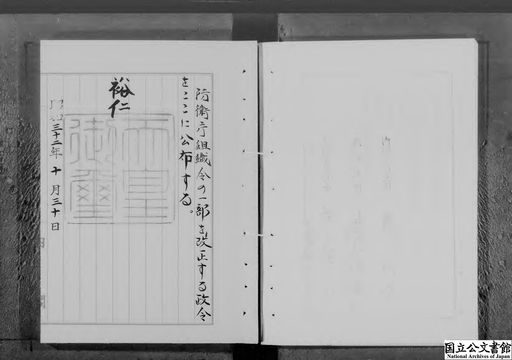 防衛庁組織令の一部を改正する政令
をここに公布する。
裕仁
天皇
御璽
昭和三十二年十月三十日
国立公文書館
National Archives of Japan